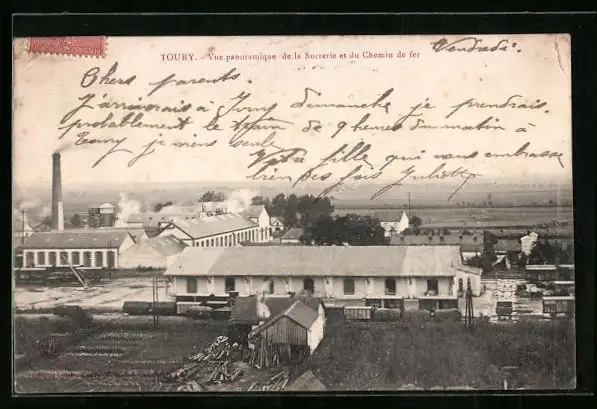 TOURY. - Vue panoramique de la Sucrerie et du Chemin de fer
Vendredi
Chers parents
J'arriverais à Joory dimanche je prendrais
probablement le train de 9 heures du matin à
Toury je viens seule
Votre fille qui vous embrasse
bien des fois Juliette